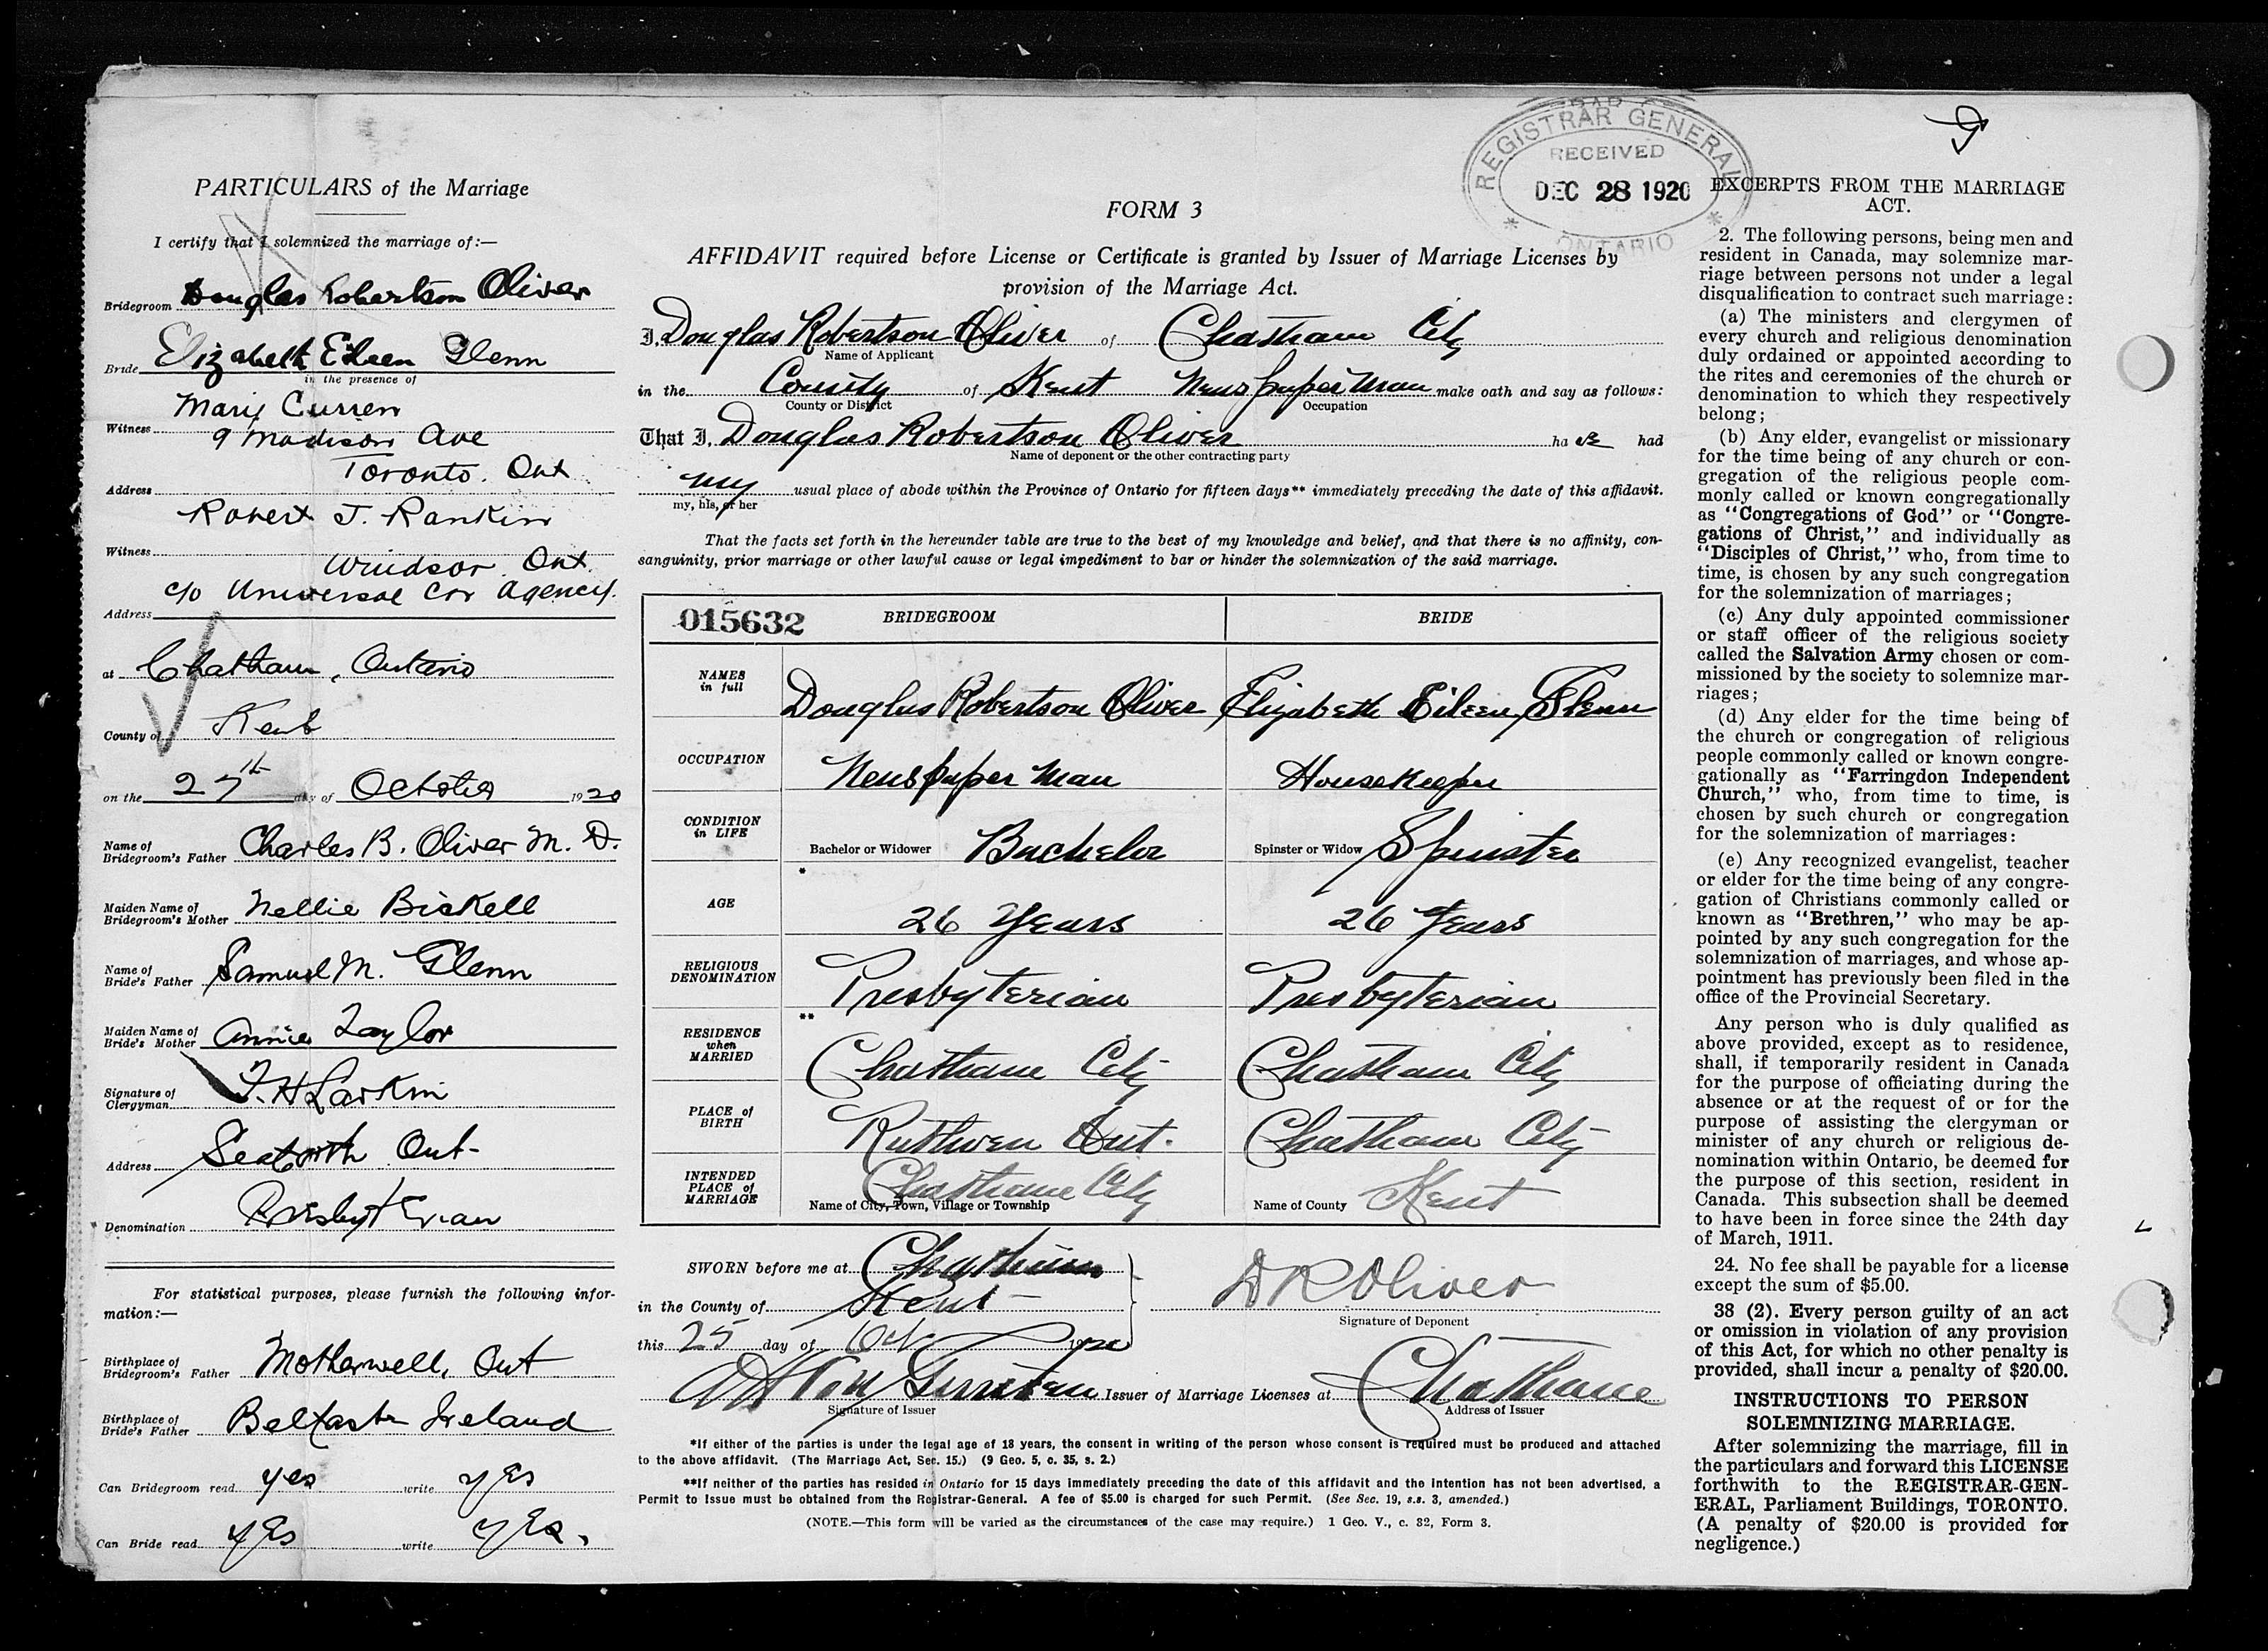 REGISTRAR GENERAL
RECEIVED
DEC 28 1920
ONTARIO
PARTICULARS of the Marriage
I certify that I solemnized the marriage of:—
Bridegroom Douglas Robertson Oliver
Bride Elizabeth Eileen Glenn
in the presence of
Mary Curren
Witness 9 Madison Ave
Toronto. Ont
Address
Robert J. Rankin
Witness
Windsor Ont.
c/o Universal Car Agency.
Address
at Chatham, Ontario
County of Kent
on the 27th day of October 1920
Name of
Bridegroom's Father Charles B. Oliver M. D.
Maiden Name of
Bridegroom's Mother Nellie Bickell
Name of
Bride's Father Samuel M. Glenn
Maiden Name of
Bride's Mother Annie Taylor
Signature of
Clergyman F. H Larkin
Address Seaforth Ont-
Denomination Presbyterian
For statistical purposes, please furnish the following infor-
mation:—
Birthplace of
Bridegroom's Father Motherwell, Ont
Birthplace of
Bride's Father Belfast Ireland
Can Bridegroom read yes write yes
Can Bride read yes write yes.
FORM 3
AFFIDAVIT required before License or Certificate is granted by Issuer of Marriage Licenses by
provision of the Marriage Act.
I, Douglas Robertson Oliver of Chatham City
Name of Applicant
in the County of Kent Newspaper Man make oath and say as follows:
County or District Occupation
That I, Douglas Robertson Oliver have had
Name of deponent or the other contracting party
my usual place of abode within the Province of Ontario for fifteen days** immediately preceding the date of this affidavit.
my, his, or her
That the facts set forth in the hereunder table are true to the best of my knowledge and belief, and that there is no affinity, con-
sanguinity, prior marriage or other lawful cause or legal impediment to bar or hinder the solemnization of the said marriage.
015632 BRIDEGROOM BRIDE
NAMES
in full Douglas Robertson Oliver Elizabeth Eileen Glenn
OCCUPATION Newspaper Man Housekeeper
CONDITION
in LIFE Bachelor or Widower Bachelor Spinster or Widow Spinster
*
AGE 26 Years 26 Years
RELIGIOUS
DENOMINATION Presbyterian Presbyterian
**
RESIDENCE
when
MARRIED Chatham City Chatham City
PLACE of
BIRTH Ruthven Ont. Chatham City
INTENDED
PLACE of
MARRIAGE Chatham City Kent
Name of City, Town, Village or Township Name of County
SWORN before me at Chatham
in the County of Kent
this 25 day of Oct 1920
D R Oliver
Signature of Deponent
Issuer of Marriage Licenses at Chatham
Signature of Issuer Address of Issuer
*If either of the parties is under the legal age of 18 years, the consent in writing of the person whose consent is required must be produced and attached
to the above affidavit. (The Marriage Act, Sec. 15.) (9 Geo. 5, c. 35, s. 2.)
**If neither of the parties has resided in Ontario for 15 days immediately preceding the date of this affidavit and the intention has not been advertised, a
Permit to Issue must be obtained from the Registrar-General. A fee of $5.00 is charged for such Permit. (See Sec. 19, s.s. 3, amended.)
(NOTE.—This form will be varied as the circumstances of the case may require.) 1 Geo. V., c. 32, Form 3.
EXCERPTS FROM THE MARRIAGE
ACT.
2. The following persons, being men and
resident in Canada, may solemnize mar-
riage between persons not under a legal
disqualification to contract such marriage:
(a) The ministers and clergymen of
every church and religious denomination
duly ordained or appointed according to
the rites and ceremonies of the church or
denomination to which they respectively
belong;
(b) Any elder, evangelist or missionary
for the time being of any church or con-
gregation of the religious people com-
monly called or known congregationally
as "Congregations of God" or "Congre-
gations of Christ," and individually as
"Disciples of Christ," who, from time to
time, is chosen by any such congregation
for the solemnization of marriages;
(c) Any duly appointed commissioner
or staff officer of the religious society
called the Salvation Army chosen or com-
missioned by the society to solemnize mar-
riages;
(d) Any elder for the time being of
the church or congregation of religious
people commonly called or known congre-
gationally as "Farringdon Independent
Church," who, from time to time, is
chosen by such church or congregation
for the solemnization of marriages:
(e) Any recognized evangelist, teacher
or elder for the time being of any congre-
gation of Christians commonly called or
known as "Brethren," who may be ap-
pointed by any such congregation for the
solemnization of marriages, and whose ap-
pointment has previously been filed in the
office of the Provincial Secretary.
Any person who is duly qualified as
above provided, except as to residence,
shall, if temporarily resident in Canada
for the purpose of officiating during the
absence or at the request of or for the
purpose of assisting the clergyman or
minister of any church or religious de-
nomination within Ontario, be deemed for
the purpose of this section, resident in
Canada. This subsection shall be deemed
to have been in force since the 24th day
of March, 1911.
24. No fee shall be payable for a license
except the sum of $5.00.
38 (2). Every person guilty of an act
or omission in violation of any provision
of this Act, for which no other penalty is
provided, shall incur a penalty of $20.00.
INSTRUCTIONS TO PERSON
SOLEMNIZING MARRIAGE.
After solemnizing the marriage, fill in
the particulars and forward this LICENSE
forthwith to the REGISTRAR-GEN-
ERAL, Parliament Buildings, TORONTO.
(A penalty of $20.00 is provided for
negligence.)